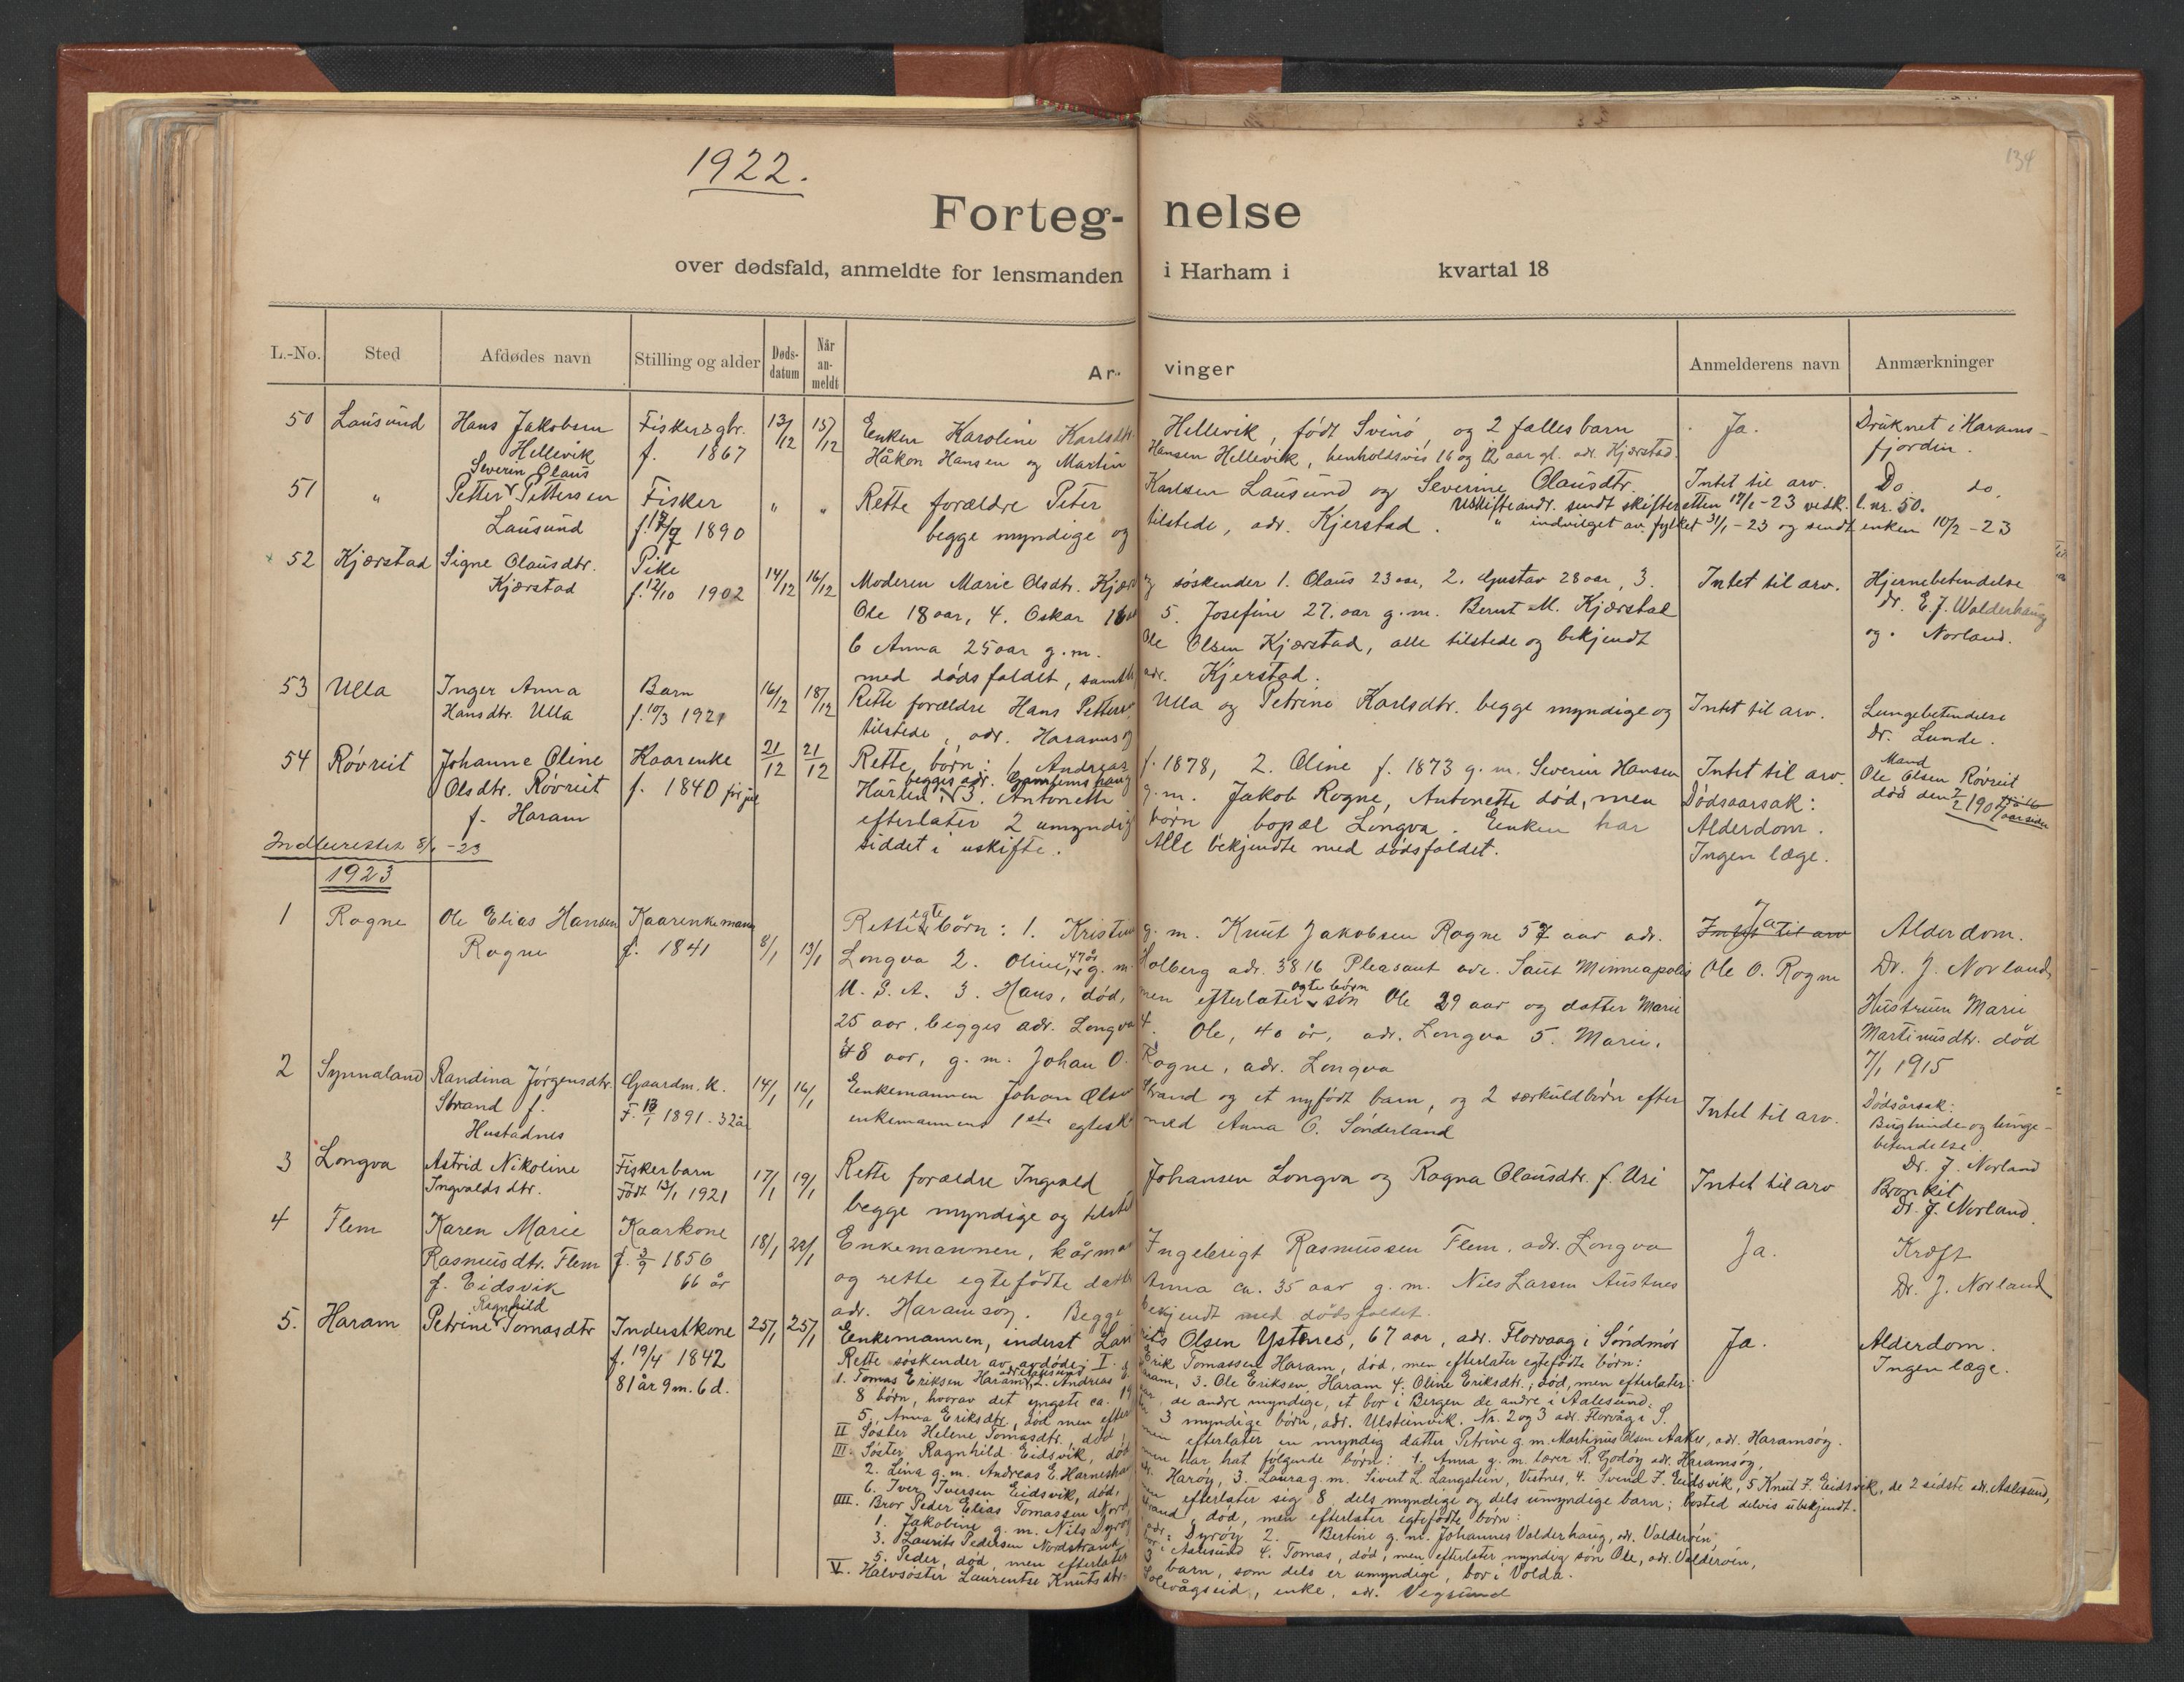 1922.
134
Forteg- nelse
over dødsfald, anmeldte for lensmanden i Harham i kvartal 18
L.-No. Sted Afdødes navn Stilling og alder Døds-datum Når an-meldt Ar- vinger Anmelderens navn Anmærkninger
50 Lausund Hans Jakobsen Fisker &gbr. 13/12 15/12 Enken Karoline Karlsdtr. Hellevik, født Svinö, og 2 fælles barn Ja. Druknet i Harams-
Hellevik f. 1867 Håkon Hansen og Martin Hansen Hellevik, henholdsvis 16 og 12 aar gl. adr. Kjærstad. fjorden.
Severin Olaus
51 " Petter Pettersen Fisker " " Rette forældre Peter Karlsen Lausund og Severine Olausdtr. Intet til arv. Do do.
Uskifteandr. sendt skifteretten 17/1-23 vedk. l. nr. 50.
Lausund f. 17/9 1890 begge myndige og tilstede, adr. Kjerstad. " indvilget av fylket 31/1-23 og sendt enken 10/2-23
52 Kjærstad Signe Olausdtr. Pike 14/12 16/12 Moderen Marie Olsdtr. Kjær og søskender 1. Olaus 23 aar, 2. Gustav 28 aar, 3. Intet til arv. Hjernebetendelse
Kjærstad f. 12/10 1902 Ole 18 aar, 4. Oskar 16 5. Josefine 27 aar g.m. Bernt M. Kjærstad Dr. E. J. Walderhaug
6 Anna 25 aar g.m. Ole Olsen Kjærstad, alle tilstede og bekjendt og. Norland.
med dödsfaldet, samtl. adr. Kjerstad.
53 Ulla Inger Anna Barn 16/12 18/12 Rette forældre Hans Petters. Ulla og Petrine Karlsdtr. begge myndige og Intet til arv. Lungebetendelse
Hansdtr. Ulla f. 10/3 1921 tilstede, adr. Haramsø Dr. Lunde.
54 Røvreit Johanne Oline Kaarenke 21/12 21/12 Rette børn: 1. Andreas f. 1878, 2. Oline f. 1873 g.m. Severin Hansen Intet til arv. Mand
begges adr. Gamlemshaug Ole Olsen Røvreit
Olsdtr. Røvreit f. 1840 før jul Hurlen, 3. Antonette g.m. Jakob Rogne, Antonette död, men Dødsaarsak: død den 1907
f. Haram efterlater 2 umyndig børn bopæl Longva. Enken har Alderdom.
siddet i uskifte. Alle bekjendte med dødsfaldet. Ingen læge.
Indberettet 8/1-23
1923
1 Rogne Ole Elias Hansen Kaarenkemann 8/1 13/1 Rette egte børn: 1. Kristine g.m. Knut Jakobsen Rogne 57 aar adr. Intet til arv Ja Alderdom.
Rogne f. 1841 Longva 2. Oline, 47 år g.m. Holberg adr. 3816 Pleasant ave. Saut Minneapolis Ole O. Rogne Dr. J. Norland
U. S. A. 3. Hans, død, men efterlater egte børn søn Ole 29 aar og datter Marie Hustruen Marie
25 aar, begges adr. Longva 4. Ole, 40 år, adr. Longva 5. Marie, Martinusdtr. död
48 aar, g.m. Johan O. Rogne, adr. Longva 7/1 1915
2 Synnaland Randina Jørgensdtr. Gaardm. k. 14/1 16/1 Enkemannen Johan Olsen Strand og et nyfödt barn, og 2 særkuldbörn efter Intet til arv. Dødsårsak:
Strand f. F. 13/1 1891. 32 år enkemannens 1ste egtesk. med Anna O. Sönderland Bughinde og lunge-
Hustadnes betendelse
Dr. J. Norland
3 Longva Astrid Nikoline Fiskerbarn 17/1 19/1 Rette forældre Ingvald Johansen Longva og Ragna Olausdtr. f. Uri Intet til arv Bronkit
Ingvaldsdtr. Født 13/1 1921 begge myndige og tilste Dr. J. Norland.
4 Flem Karen Marie Kaarkone 18/1 22/1 Enkemannen, kårm Ingebrigt Rasmussen Flem, adr. Longva Ja. Kræft
Rasmusdtr. Flem f. 3/9 1856 og rette egtefödte datter Anna ca. 35 aar g.m. Nils Larsen Austnes Dr. J. Norland
f. Eidsvik 66 år adr. Haramsøy. Begge bekjendt med dödsfaldet.
Ragnhild
5. Haram Petrine Tomasdtr Inderstkone 25/1 25/1 Enkemannen, inderst Lau rits Olsen Ystenes, 67 aar, adr. Florvaag i Söndmör Ja. Alderdom.
f. 19/4 1842 Rette søskender av avdøde: I. Erik Tomassen Haram, död, men efterlater egtefödte börn: Ingen læge.
81 år 9 m. 6 d. 1. Tomas Eriksen Haram, adr. Aalesund 2. Andreas E. Haram, 3. Ole Eriksen Haram 4. Oline Eriksdtr., död, men efterlater
8 börn, hvorav det yngste ca. 19 aar, de andre myndige, et bor i Bergen de andre i Aalesund.
5. Anna Eriksdtr., død men efter 3 myndige börn, adr. Ulsteinvik. Nr. 2 og 3 adr. Florvåg i S.
II Söster Helene Tomasdtr., död, men efterlater en myndig datter Petrine g.m. Martinus Olsen Aakre, adr. Haramsöy.
III. Söster Ragnhild Eidsvik, död men har hat følgende börn: 1. Anna g.m. lærer R. Godöy adr. Haramsöy,
2. Lina g.m. Andreas E. Harneshau adr. Haröy, 3. Laura g.m. Sivert L. Langstein, Vestnes, 4. Svend J. Eidsvik, 5 Knut J. Eidsvik, de 2 sidste adr. Aalesund,
6. Iver Iversen Eidsvik, död, men efterlater sig 8 dels myndige og dels umyndige barn; bosted delvis ubekjendt.
IIII. Bror Peder Elias Tomassen Nord strand, död, men efterlater egtefödte börn:
1. Jakobine g.m. Nils Dyröy adr. Dyröy 2. Bertine g.m. Johannes Valderhaug, adr. Valderöen,
3. Laurits Pedersen Nordstrand, bor i Aalesund 4. Tomas, död, men efterlater myndig sön Ole, adr. Valderöen,
5. Peder, död, men efterlater 3 barn, som dels er umyndige, bor i Volda.
V. Halvsöster Laurentse Knutsdtr. Solevågseid, enke, adr. Vegsund